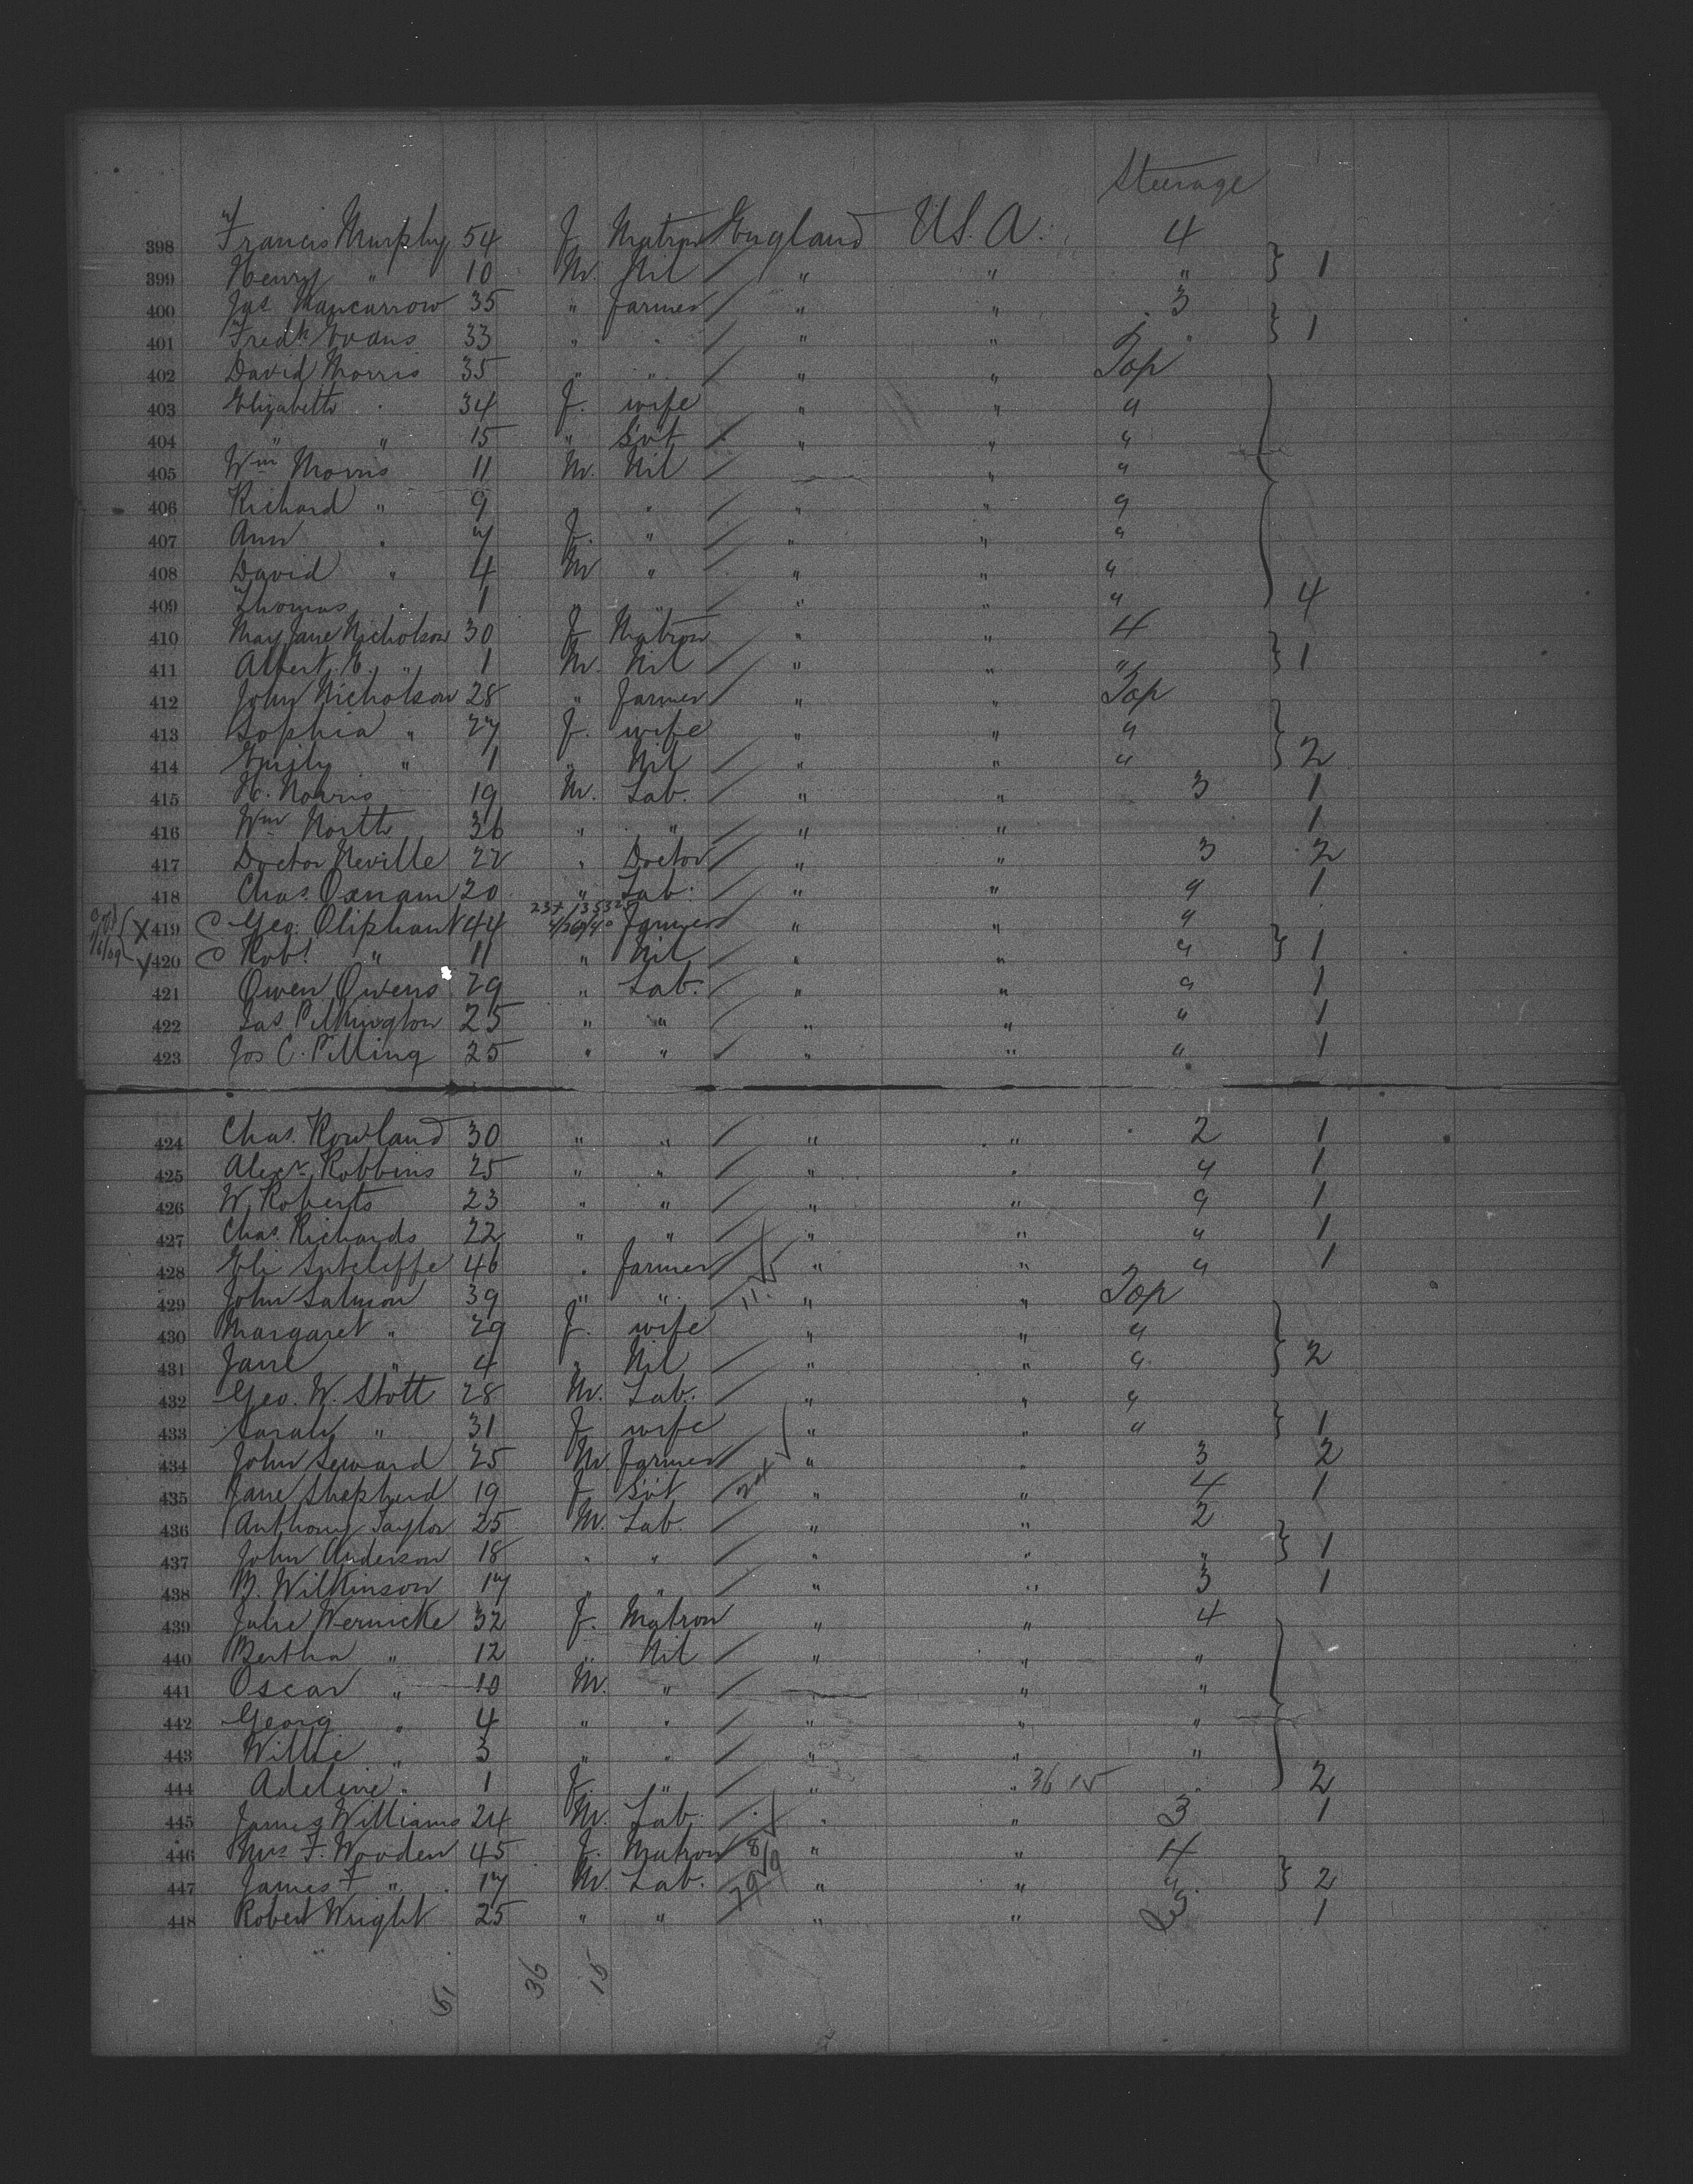 Steerage
398 Francis Murphy 54 F Matron England U.S.A. 4
399 Henry " 10 M. Nil / " " " } 1
400 Jas Mancarrow 35 " Farmer / " " 3
401 Fredk Evans 33 " " / " " " } 1
402 David Morris 35 " " / " " Top
403 Elizabeth " 34 F. wife " " "
404 " " 15 " Svt / " " "
405 Wm Morris 11 M. Nil / " "
406 Richard " 9 " " / " " "
407 Ann " 7 F. " / " " "
408 David " 4 M " / " " "
409 Thomas " 1 " " / " " " 4
410 Mary Jane Nicholson 30 F Matron " " 4
411 Albert E. " 1 M. Nil / " " " } 1
412 John Nicholson 28 " Farmer / " " Top
413 Sophia " 27 F. wife " " "
414 Emily " 1 " Nil / " " " } 2
415 H. Norris 19 M. Lab. / " " 3 1
416 Wm North 36 " " / " " 1
417 Doctor Neville 22 " Doctor / " " 3 2
418 Chas. Oxnam 20 " Lab. / " " " 1
X 419 C Geo. Oliphant 44 Farmer " "
X 420 C Robt " 11 " Nil " " " } 1
421 Owen Owens 29 " Lab. / " " " 1
422 Jas Pilkington 25 " " / " " " 1
423 Jos C. Pilling 25 " " / " " " 1
424 Chas. Rowland 30 " " / " " 2 1
425 Alexr Robbins 25 " " / " " " 1
426 W. Roberts 23 " " / " " " 1
427 Chas. Richards 22 " " / " " " 1
428 Eli Sutcliffe 46 " Farmer / " " " 1
429 John Salmon 39 " " / " " Top
430 Margaret " 29 F. wife " " "
431 Jane " 4 " Nil / " " " } 2
432 Geo. W. Stott 28 M. Lab. / " " "
433 Sarah " 31 F wife " " " } 1
434 John Seward 25 M. Farmer / " " 3 2
435 Jane Shepherd 19 F Svt / " " 4 1
436 Anthony Taylor 25 M. Lab. / " " 2
437 John Anderson 18 " " / " " " } 1
438 B. Wilkinson 17 " " / " " 3 1
439 Julie Wernicke 32 F. Matron " " 4
440 Bertha " 12 " Nil / " " "
441 Oscar " 10 M. " / " "
442 Georg " 4 " " / " " "
443 Willie " 3 " " / " " "
444 Adeline " 1 F. " / " " 36 15 " 2
445 James Williams 24 M. Lab. / " " 3 1
446 Mrs F. Wooden 45 F. Matron " " 4
447 James F " 17 M. Lab. / " " " } 2
448 Robert Wright 25 " " / " " 3 1
51 36 15